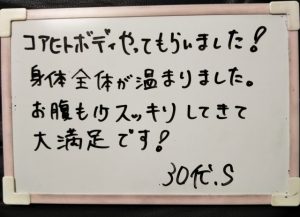 コアヒトボディやってもらいました!
身体全体が温まりました。
お腹もスッキリしてきて
大満足です!
30代.S